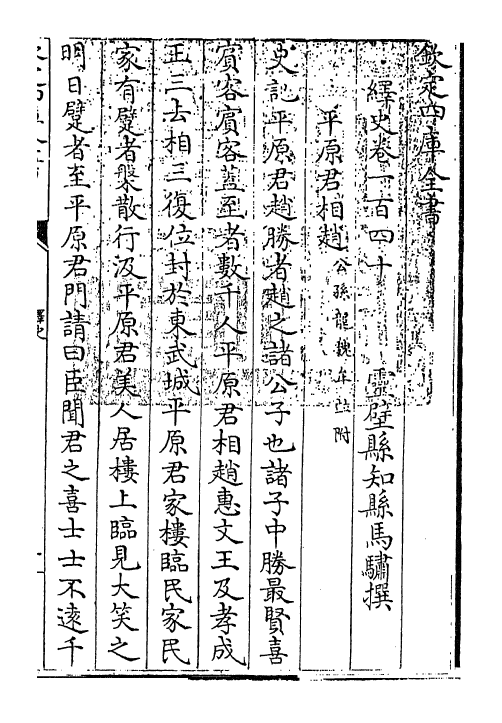 欽定四庫全書
繹史卷一百四十　靈壁縣知縣馬驌撰
平原君相趙公孫龍魏牟附
史記平原君趙勝者趙之諸公子也諸子中勝最賢喜
賓客賓客蓋至者數千人平原君相趙惠文王及孝成
王三去相三復位封於東武城平原君家樓臨民家民
家有躄者槃散行汲平原君美人居樓上臨見大笑之
明日躄者至平原君門請曰臣聞君之喜士士不遠千
繹史